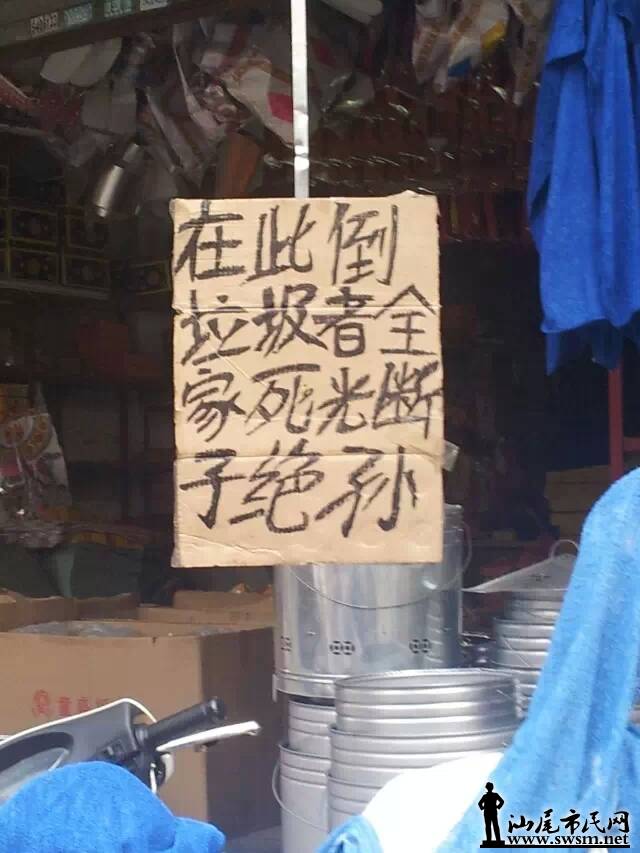 在此倒
垃圾者全
家死光断
子绝孙
汕尾市民网
www.swsm.net